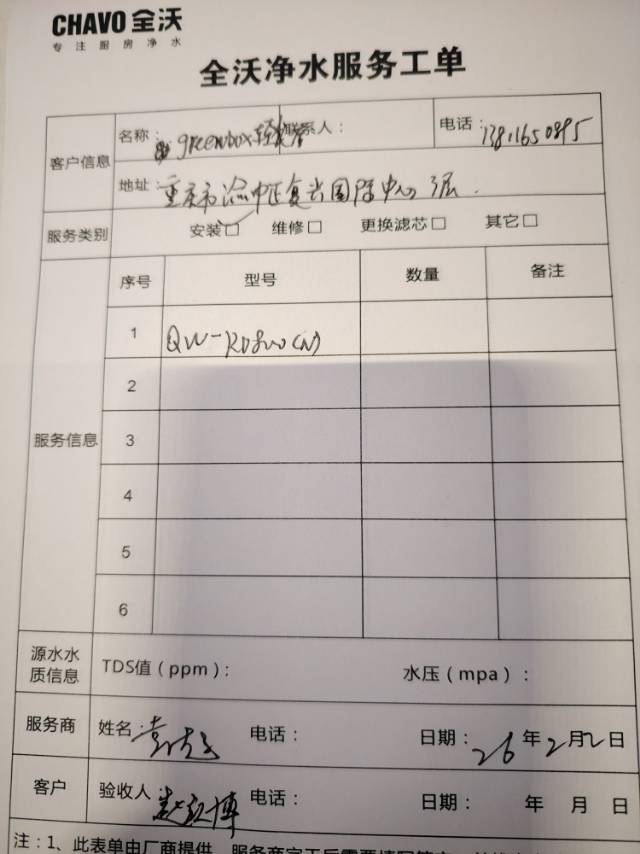 CHAVO 全沃
专注厨房净水
全沃净水服务工单
客户信息 名称： greenbox轻 联系人： 电话：13811650895
地址：重庆市渝中区复兴国际中心
服务类别 安装□ 维修□ 更换滤芯□ 其它□
服务信息 序号 型号 数量 备注
1
2
3
4
5
6
源水水质信息 TDS值（ppm）： 水压（mpa）：
服务商 姓名： 电话： 日期：26年2月2日
客户 验收人 电话： 日期： 年 月 日
注：1、此表单由厂商提供，服务商完工后需要填写